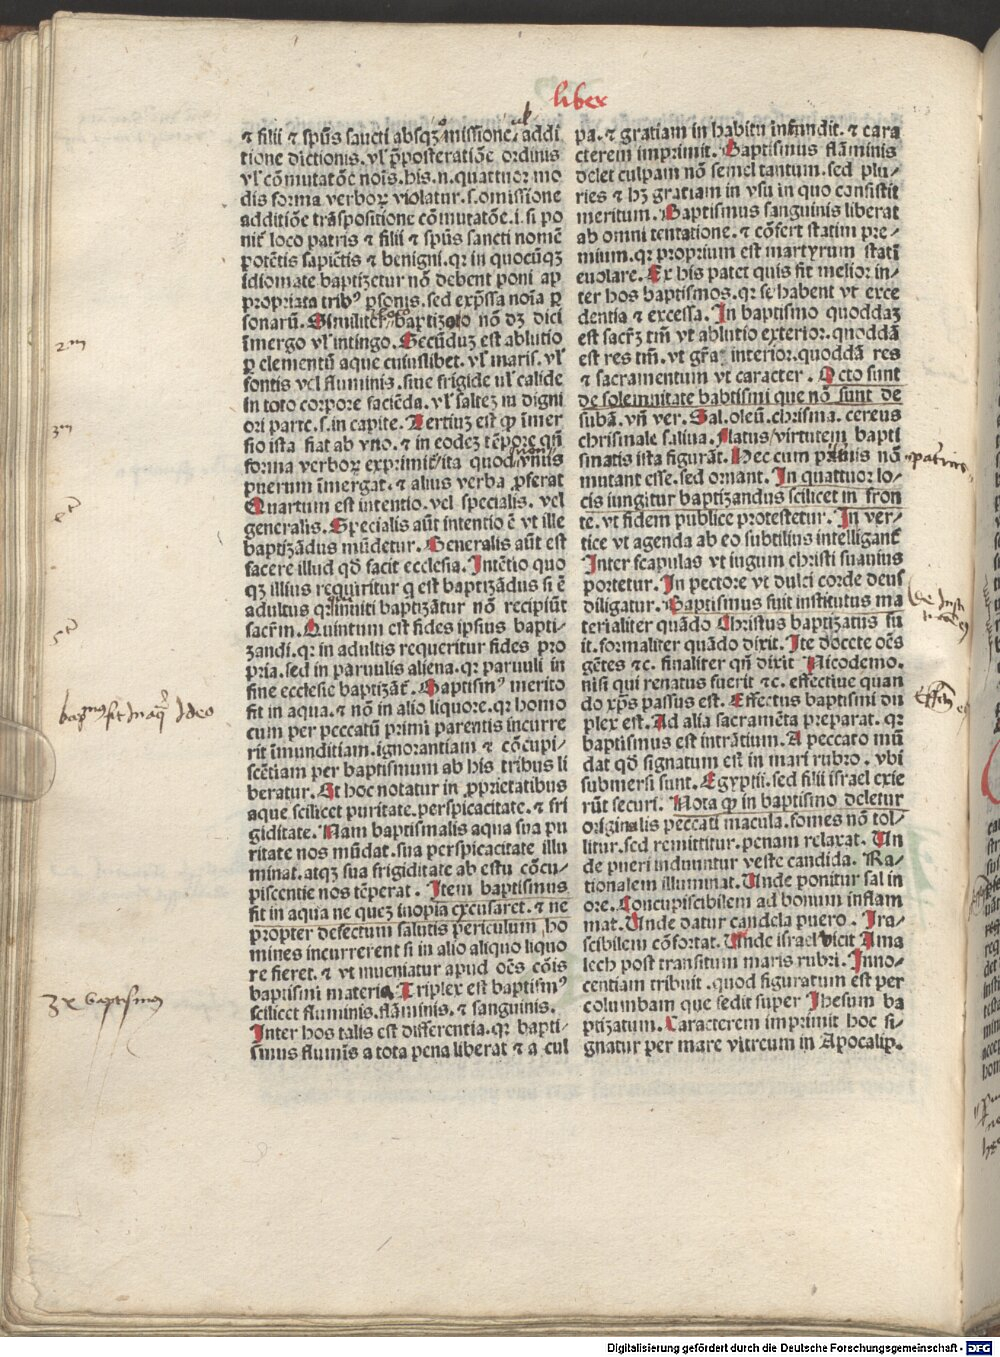 liber
⁊ filii ⁊ sp̄us sancti absqꝫ omissione vl̓ addi
tione dictionis. vl̓ p̄posteratiōe ordinis
vl̓ cōmutatōe nois. his. n. quattuor mo
dis forma verboꝝ violatur. s. omissione
additiōe trāspositione cōmutatōe. i. si po
nit̄ loco patris ⁊ filii ⁊ sp̄us sancti nomē
potētis sapiētis ⁊ benigni. qꝛ in quocūqꝫ
idiomate baptizetur nō debent poni ap
propriata tribꝰ ꝑsonis. sed exp̄ssa noīa ꝑ
sonarū. Similiter baptizo nō dꝫ dici
īmergo vl̓ intingo. Secūduꝫ est ablutio
ꝑ elementū aque cuiuslibet. vl̓ maris. vl̓
fontis vel fluminis. siue frigide ul̓ calide
in toto corpore faciēda. vl̓ saltez in digni
ori parte. s. in capite. Tertiuꝫ est ꝙ īmer
sio ista fiat ab vno. ⁊ in eodeꝫ tēpore qn̄
forma verboꝝ exprimit̄ ita quod vnus
puerum īmergat. ⁊ alius verba ꝓferat
Quartum est intentio. vel specialis. vel
generalis. Specialis aūt intentio ē vt ille
baptizādus mūdetur. Generalis aūt est
facere illud qd̓ facit ecclesia. Intētio quo
qꝫ illius requiritur q est baptizādus si ē
adultus qꝛ inuiti baptizātur nō recipiūt
sacr̄m. Quintum est fides ipsius bapti-
zandi. qꝛ in adultis requeritur fides pro
pria. sed in paruulis aliena. qꝛ paruuli in
fine ecclesie baptizāt̄. Baptismꝰ merito
fit in aqua. ⁊ nō in alio liquore. qꝛ homo
cum per peccatū primi parentis incurre
rit īmunditiam. ignorantiam ⁊ cōcupi-
scētiam per baptismum ab his tribus li
beratur. Et hoc notatur in ꝓprietatibus
aque scilicet puritate. perspicacitate. ⁊ fri
giditate. Nam baptismalis aqua sua pu
ritate nos mūdat. sua perspicacitate illu
minat. atqꝫ sua frigiditate ab estu cōcu-
piscentie nos tēperat. Item baptismus
fit in aqua ne queꝫ inopia excusaret. ⁊ ne
propter defectum salutis periculum ho
mines incurrerent si in alio aliquo liquo
re fieret. ⁊ vt mueniatur apud oēs cōis
baptismi materia. Triplex est baptismꝰ
scilicet fluminis. flāminis. ⁊ sanguinis.
Inter hos talis est differentia. qꝛ bapti-
smus flumīs a tota pena liberat ⁊ a cul
pa. ⁊ gratiam in habitu infundit. ⁊ cara
cterem imprimit. Baptismus flāminis
delet culpam nō semel tantum. sed plu-
ries ⁊ hꝫ gratiam in vsu in quo consistit
meritum. Baptismus sanguinis liberat
ab omni tentatione. ⁊ cōfert statim pre-
mium. qꝛ proprium est martyrum statī
euolare. Ex his patet quis fit melior in-
ter hos baptismos. qꝛ se habent vt exce
dentia ⁊ excessa. In baptismo quoddaꝫ
est sacr̄ꝫ tm̄ vt ablutio exterior. quoddā
est res tm̄. vt gr̄a interior. quoddā res
⁊ sacramentum vt caracter. Octo sunt
de solemnitate babtismi que nō sunt de
subā. vn̄ ver. Sal. oleū. chrisma. cereus
chrismale saliua. flatus virtutem bapti
smatis ista figurāt. Hec cum primis nō
mutant esse. sed ornant. In quattuor lo-
cis iungitur baptizandus scilicet in fron
te. vt fidem publice protestetur. In ver-
tice vt agenda ab eo subtilius intelligant̄
Inter scapulas vt iugum christi suanius
portetur. In pectore vt dulci corde deus
diligatur. Baptismus fuit institutus ma
terialiter quādo Christus baptizatus fu
it. formaliter quādo dixit. Ite docete oēs
gētes ⁊c. finaliter qn̄ dixit Nicodemo.
nisi qui renatus fuerit ⁊c. effectiue quan
do xp̄s passus est. Effectus baptismi du
plex est. Ad alia sacramēta preparat. qꝛ
baptismus est intrātium. A peccato mū
dat qd̓ signatum est in mari rubro. vbi
submersi sunt. Egyptii. sed filii israel exie
rūt securi. Nota ꝙ in baptismo deletur
originalis peccati macula. fomes nō tol-
litur. sed remittitur. penam relaxat. Vn
de pueri induuntur veste candida. Ra-
tionalem illuminat. Unde ponitur sal in
ore. Concupiscibilem ad bonum inflam
mat. Unde datur candela puero. Ira-
scibilem cōfortat. Unde israel vicit Ama
lech post transitum maris rubri. Inno-
centiam tribuit. quod figuratum est per
columbam que sedit super Ihesum ba
ptizatum. Caracterem imprimit hoc si-
gnatur per mare vitreum in Apocalip.
2m
3m
4m
5m
3x baptismus
patrinus
Digitalisierung gefördert durch die Deutsche Forschungsgemeinschaft - DFG